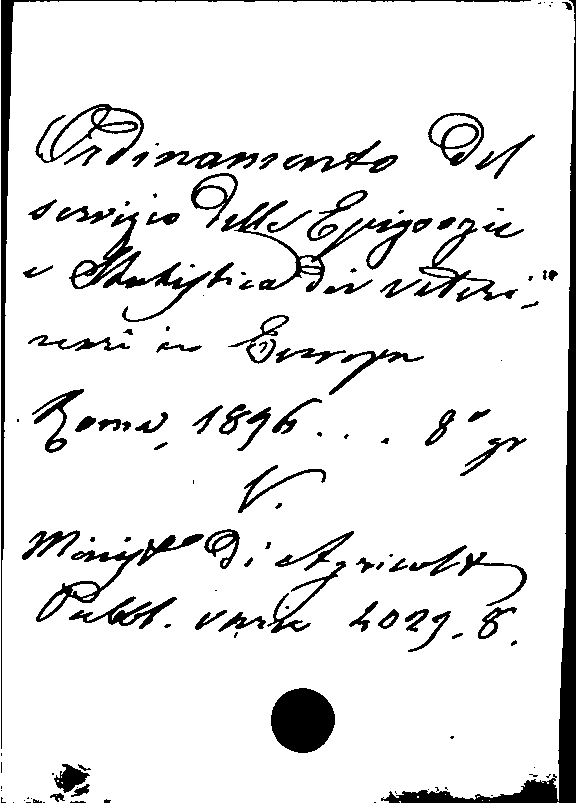 Ordinamento del
servizio delle Epizoozie
e Statistica dei veteri-
nari in Europa
Roma, 1896 . . . 8° gr
V.
Minist° di Agricolt
Pubbl. varie 4029. 8.